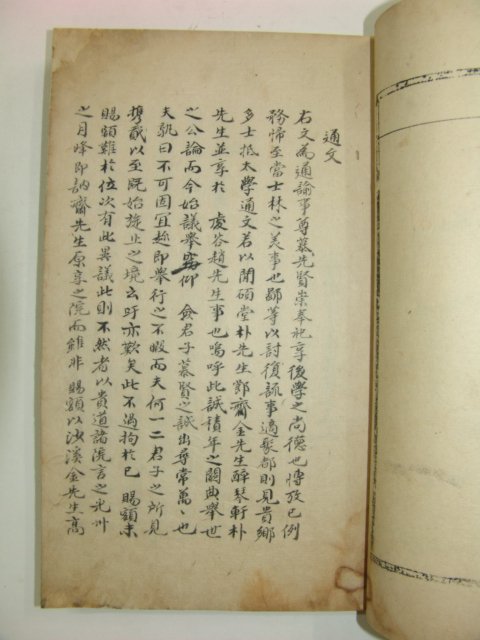 通文
右文為通諭事尊慕先賢崇奉祀享後學之尚德也愽攷已例
務歸至當士林之美事也鄙等以討復疏事適聚都則見貴鄉
多士抵太學通文若以閒碩堂朴先生鄭齋金先生醉琴軒朴
先生並享於 虔谷趙先生事也嗚呼此誠積年之闕典舉世
之公論而今始議舉竊仰 僉君子慕賢之誠出尋常萬〻也
夫孰曰不可固宜趂即舉行之不暇而夫何一二君子之所見
携貳以至既始旋止之境云吁亦歎矣此不過拘於已 賜額未
賜額難於位次有此異議此則不然者以貴道諸院言之光州
之月峰即訥齋先生原享之院而雖非 賜額以沙溪金先生高